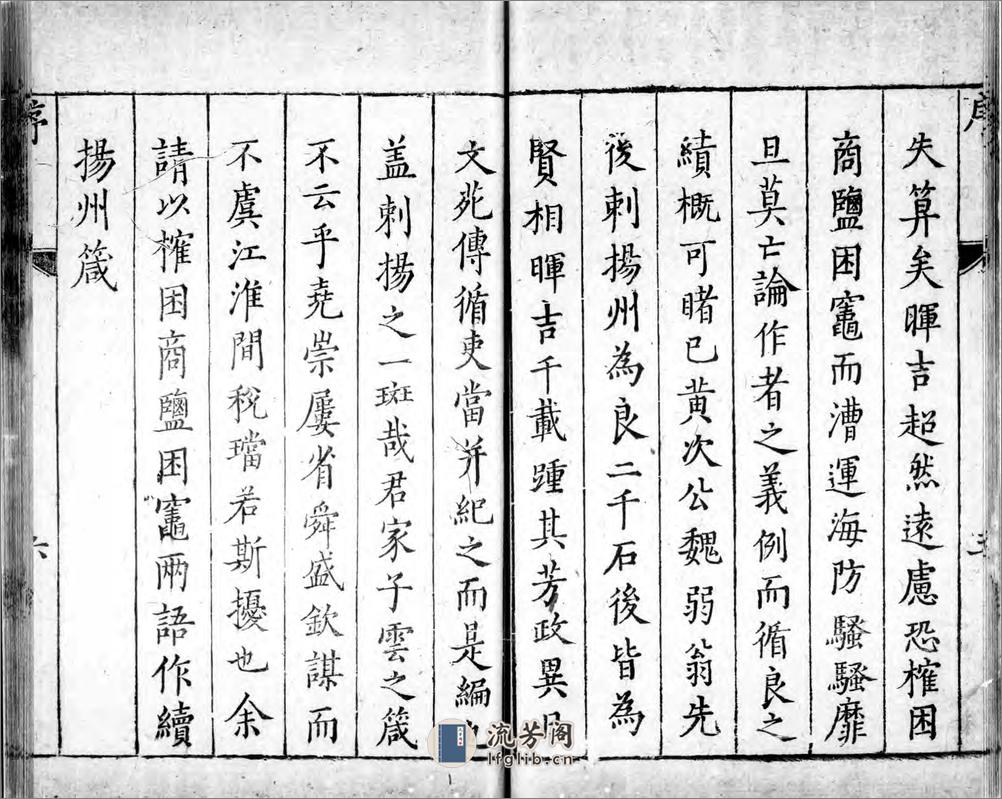 失算矣暉吉超然遠慮恐榷困
商鹽困竈而漕運海防騷騷靡
旦莫亡論作者之義例而循良之
績概可睹已黄次公魏弱翁先
後刺揚州為良二千石後皆為
賢相暉吉千載踵其芳政異日
文苑傳循吏當并紀之而是編也
盖刺揚之一斑哉君家子雲之箴
不云乎堯崇屢省舜盛欽謀而
不虞江淮間稅璫若斯擾也余
請以榷困商鹽困竈兩語作續
揚州箴
序
六
流芳阁
lfglib.cn